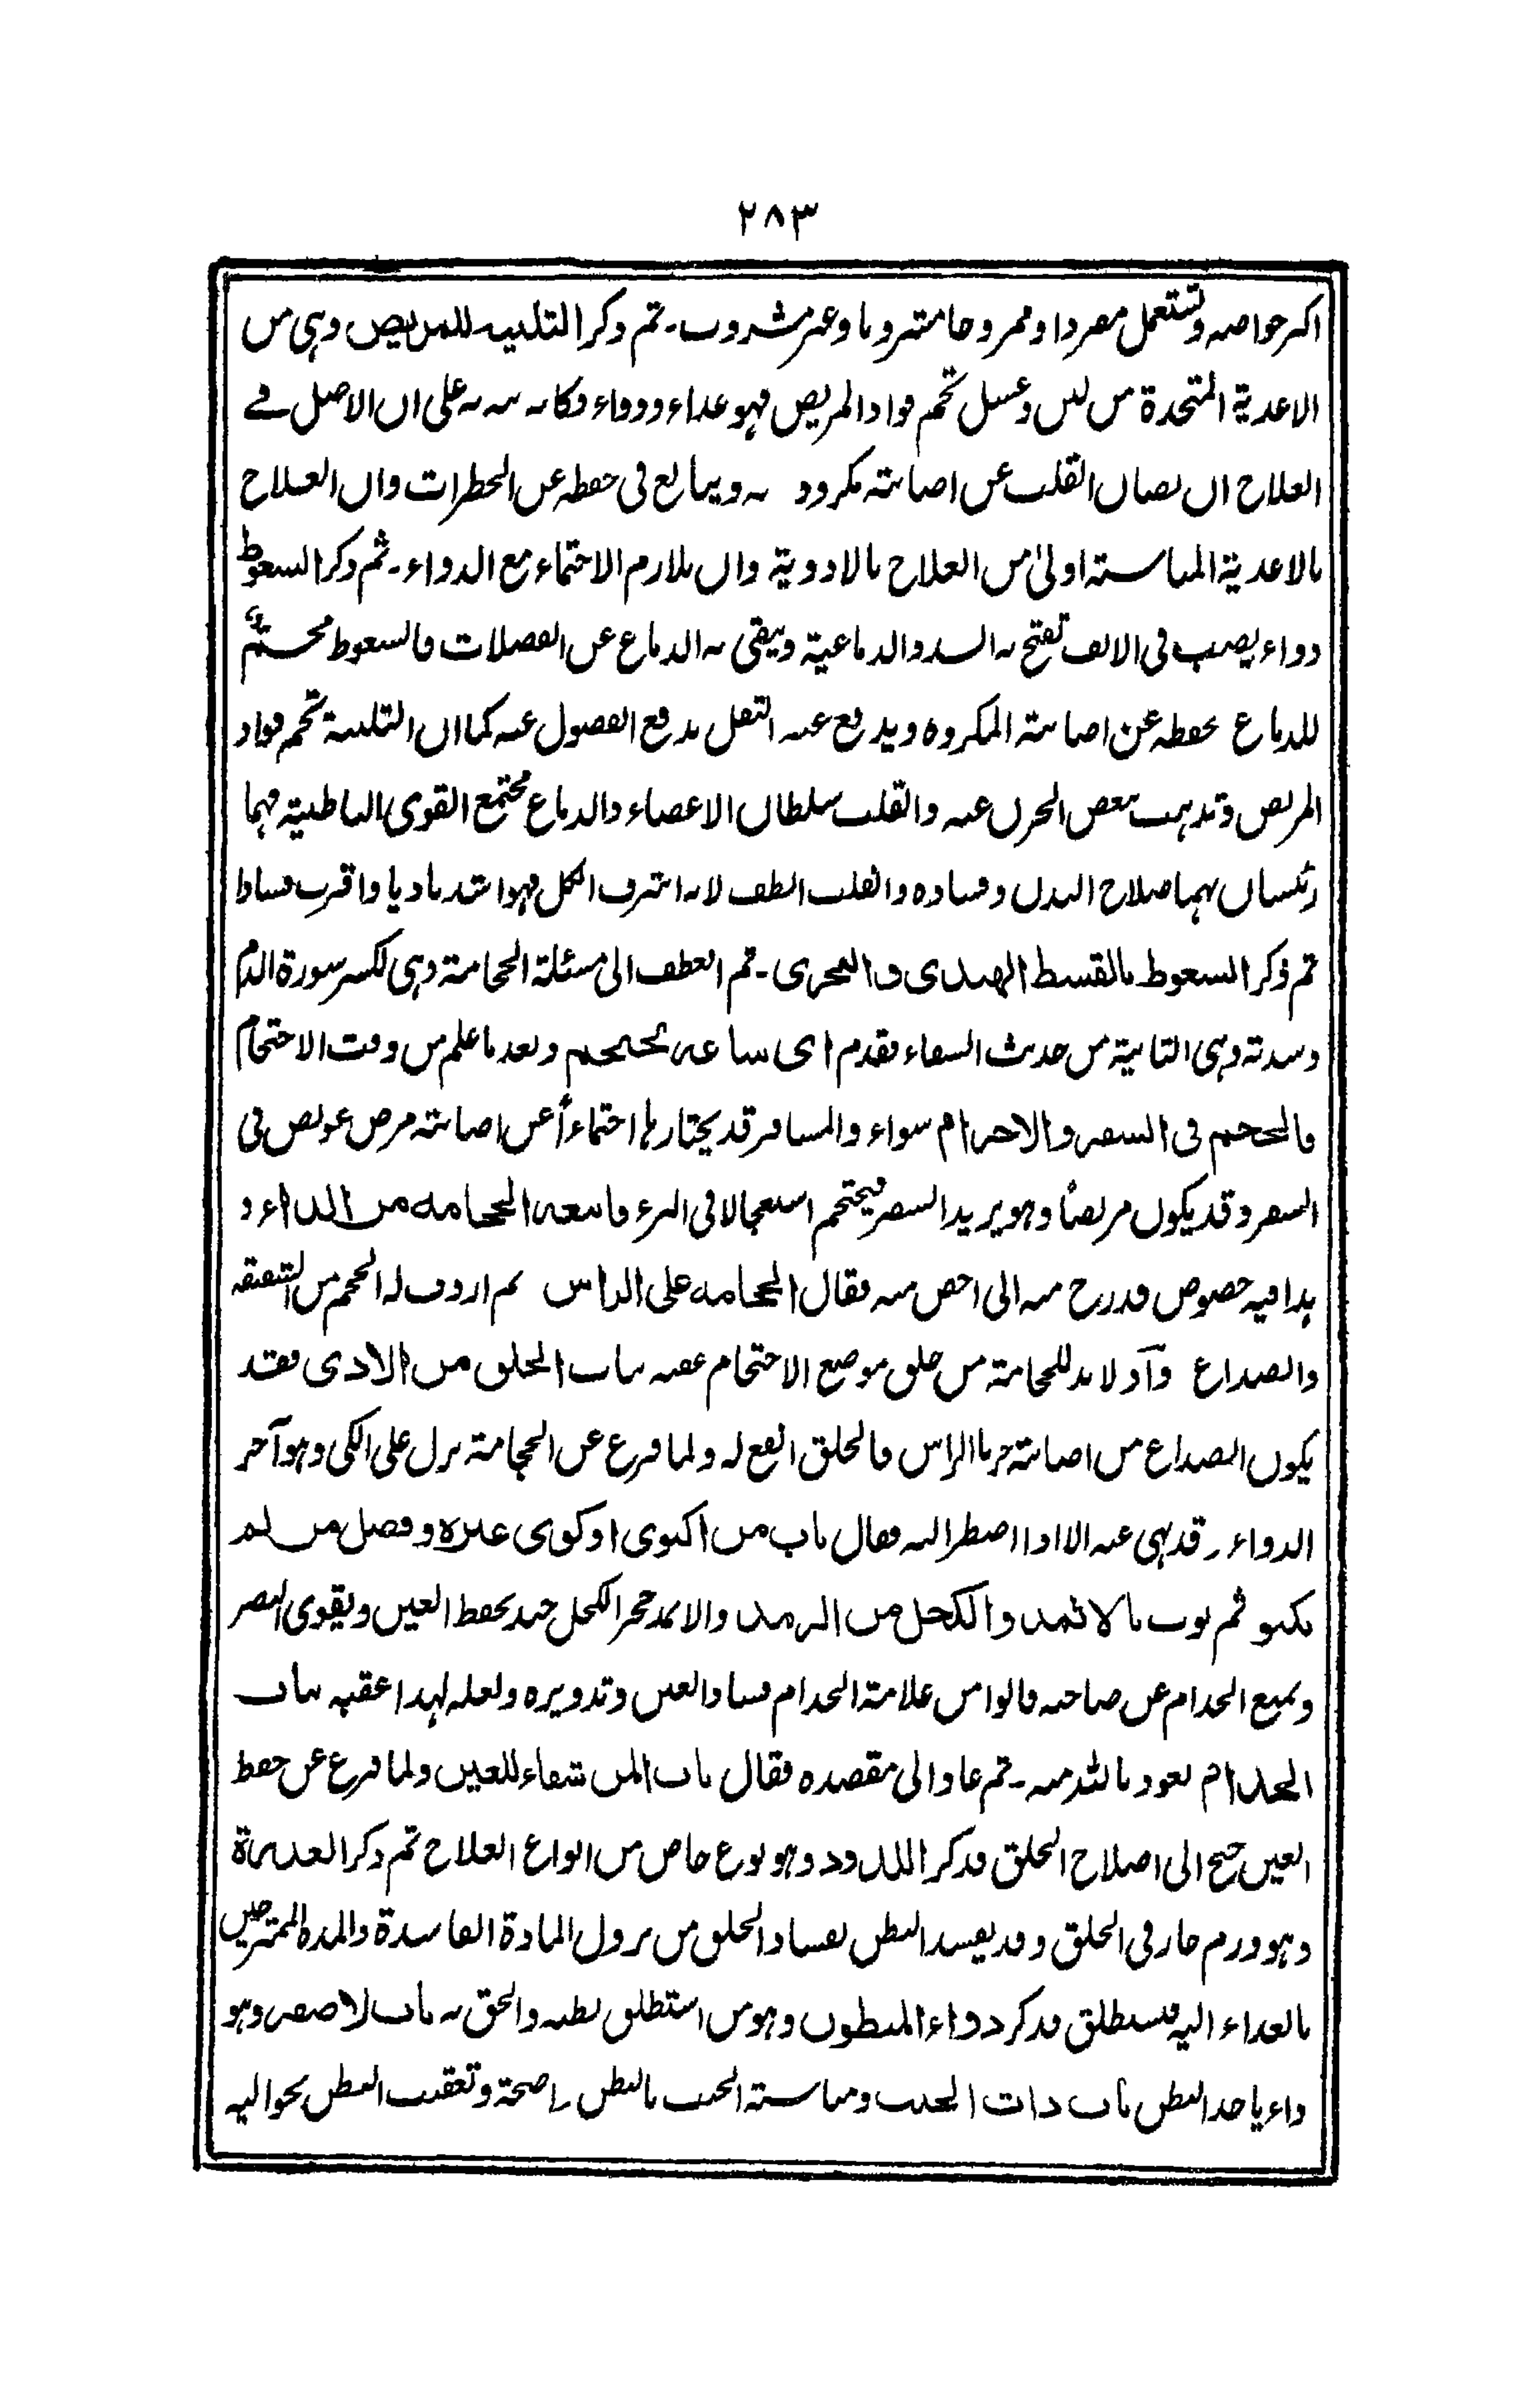 ٢٨٣
اكبر خواصه وتستعمل مفردا وممزوجا مشروبا وغير مشروب ۔ ثم ذكر التلبينة للمريض وہى من
الاغذية المتخذة من لبن وعسل تجم فواد المريض فہو غذاء ودواء فكانه نبه به على ان الاصل فے
العلاج ان يصان القلب عن اصابته مكروه به ويبالغ فى حفظه عن الخطرات وان العلاج
بالاغذية المناسبة اولىٰ من العلاج بالادوية وان يلازم الاحتماء مع الدواء ۔ ثم ذكر السعوط
دواء يصب فى الانف تفتح به السدد الدماغية وينقى به الدماغ عن الفضلات فالسعوط
للدماغ يحفظه عن اصابته المكروه ويدفع عنه الثقل بدفع الفضول عنه كما ان التلبينة تجم فواد
المريض وتذہب ببعض الحزن عنه والقلب سلطان الاعضاء والدماغ مجتمع القوى الباطنية فہما
رئيسان بہما صلاح البدن وفساده والقلب الطف لانه اشرف الكل فہو اشد تاذيا واقرب فسادا
ثم ذكر السعوط بالقسط الهندى والبحرى ۔ ثم انعطف الى مسئلة الحجامة وہى لكسر سورة الدم
وشدته وہى الثانية من حديث الشفاء فقدم اى ساعة يحتجم وبعد ما علم من وقت الاحتجام
فالحجم فى السفر والاحرام سواء والمسافر قد يختارہا احتماءً عن اصابته مرض عويص فى
السفر وقد يكون مريضاً وہو يريد السفر فيحتجم استعجالا فى البرء فاتبعه الحجامة من الداء و
ہذا فيه خصوص فدرج منه الى اخص منه فقال الحجامة على الراس ثم اردف له الحجم من الشقيقة
والصداع وآذ لا بد للحجامة من حلق موضع الاحتجام عقبه بباب الحلق من الاذى فقد
يكون الصداع من اصابته حر بالراس فالحلق انفع له ولما فرغ عن الحجامة نزل على الكى وہو آخر
الدواء وقد نہى عنه الا اذا اضطر اليه فقال باب من اكتوى او كوى غيره وفضل من لم
يكتو ثم بوب بالاثمد والكحل من الرمد والاثمد حجر الكحل جيد يحفظ العين ويقوى البصر
ويمنع الجذام عن صاحبه قالوا من علامة الجذام فساد العين وتدويره ولعله لہذا عقبه بباب
الجذام نعوذ بالله منه ۔ ثم عاد الى مقصده فقال باب المن شفاء للعين ولما فرغ عن حفظ
العين جنح الى اصلاح الحلق فذكر اللدود وہو نوع خاص من انواع العلاج ثم ذكر العذرة
وہو ورم حار فى الحلق وقد يفسد البطن بفساد الحلق من نزول المادة الفاسدة والمدة
بالغذاء اليه فيستطلق فذكر دواء المبطون وہو من استطلق بطنه والحق به باب لا صفر وہو
داء ياخذ البطن باب ذات الجنب ومناسبة الجنب بالبطن واضحة وتعقيب البطن بحواليه